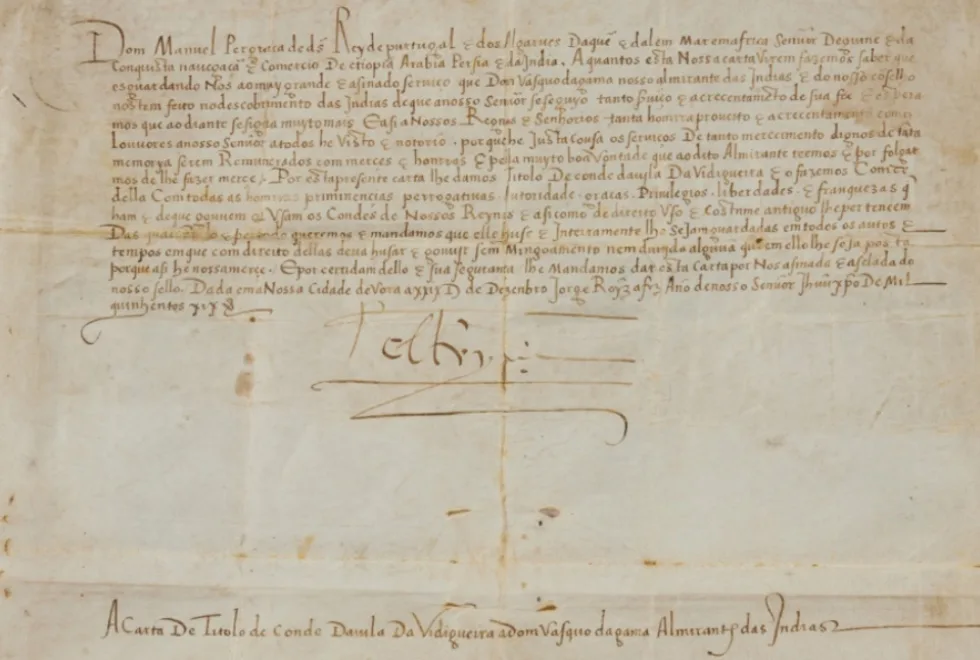 Dom Manuel Per graca de ds Rey de purtugal & dos Algarves Daque & dalem Mar em africa Senhor De guine & da
Conquista navegaçã & Comercio De etiopia Arabia Persia & da India. A quantos esta Nossa carta virem fazemos saber que
esguardando Nos ao muy grande & asinado serviço que Dom Vasquo da gama nosso almirante das Indias & do nosso coselho
nos tem feito no descobrimento das Indias de que a nosso Senhor se seguyo tanto & acrecentameto de sua fee &
mos que ao diante se siga muyto mais E asi a Nossos Reynos & Senhorios tanta homrra proveito & acrecentamento
Louvores a nosso Senhor a todos he Visto & notorio. por que he Justa Cousa os serviços De tanto merecimento dignos de tãta
memorya serem Remunerados com merces & homrras & pella muyto boa Vontade que ao dito Almirante teemos & por folgar
mos de lhe fazer merce, Por esta presente carta lhe damos Titolo De conde da vila Da Vidigueira & o fazemos Comde
della Com todas as homrras priminencias perrogativas. Autoridade. gracas. Privilegios. liberdades. & franquezas q
ham & de que gouvem & Usam os Condes de Nossos Reynos & asi como de direito Uso & Costume antiguo lhe pertencem
Das quaes queremos & mandamos que elle huse & Inteiramente lhe Sejam guardadas em todos os autos &
tempos em que com direito dellas deva husar & gouvir sem Mingoamento nem duvida alguua que em ello lhe seja posta
porque asi he nossa merce. E por certidam dello & sua seguranca lhe Mandamos dar esta Carta por Nos asinada & aselada do
nosso sello. Dada em a Nossa Cidade deVora a xxix D de Dezenbro Jorge Royz a fez Ano de nosso Senhor Jhuu xpo De Mil
quinhentos xix
A Carta De Titolo de Conde Da vila Da Vidigueira a Dom Vasquo da gama Almirante das Indias